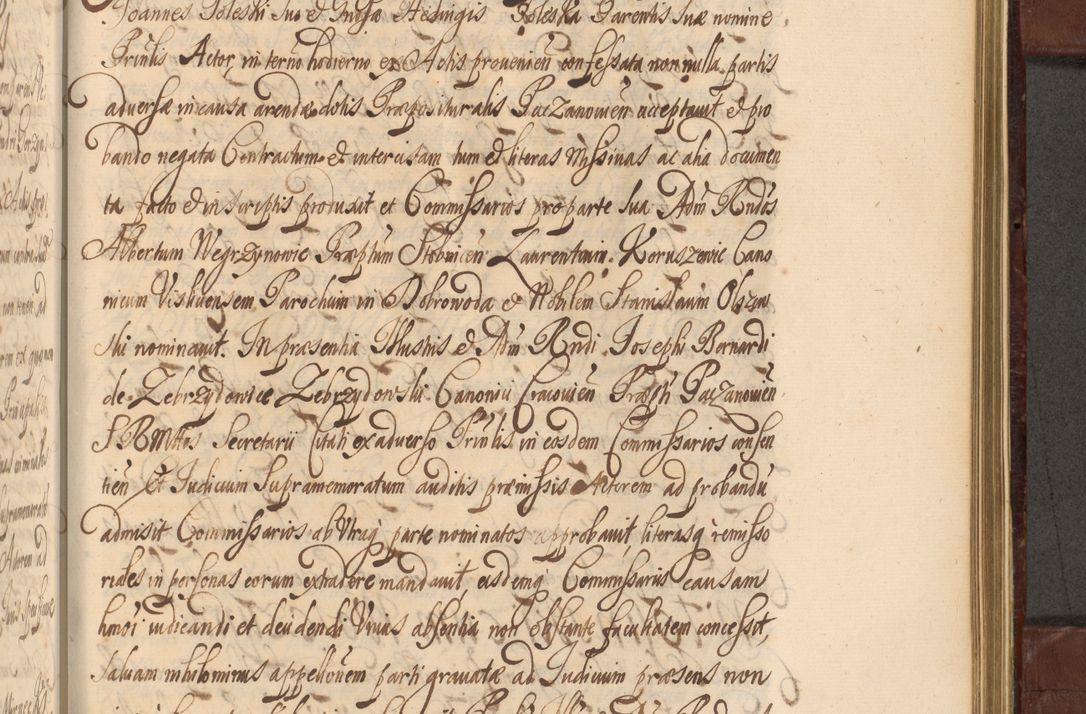 Joannes Poleski suo et Gnosæ Hedvigis Poleska Parentis suæ nomine
Prinlis Actor, in terno hodierno ex Actis provenien confessata non nulla partis
adversæ in causa arendæ dotis Præpositturalis Paczanovien acceptavit et pro
bando negata Contractum et intercisam tum et literas Missivas ac alia documen
ta facto et in scriptis produxit et Commissarios pro parte sua Adm Rndos
Albertum Węgrzynowic Præptum Stobnicen Laurentium Koruszewic Cano
nicum Visliciensem Parochum in Dobrowoda et Nobilem Stanislaum Olszew
ski nominavit. In præsentia Illustris et Adm Rndi Josephi Bernardi
de Zebrzydowice Zebrzydowski Canonici Cracovien Præpti Paczanovien
S R Mttis Secretarii Citati ex adverso Prinlis in eosdem Commissarios consen
tien Et Judicium supramemoratum auditis præmissis Actorem ad probandū
admisit Commissarios ab utraq parte nominatos approbavit, literasq remisso
riales in personas eorum extradere mandavit, eisdemq Commissariis causam
hmoi iudicandi et decidendi unius absentia non obstante facultatem concessit
salvam nihilominus appellonem parti gravatæ ad Judicium præsens non